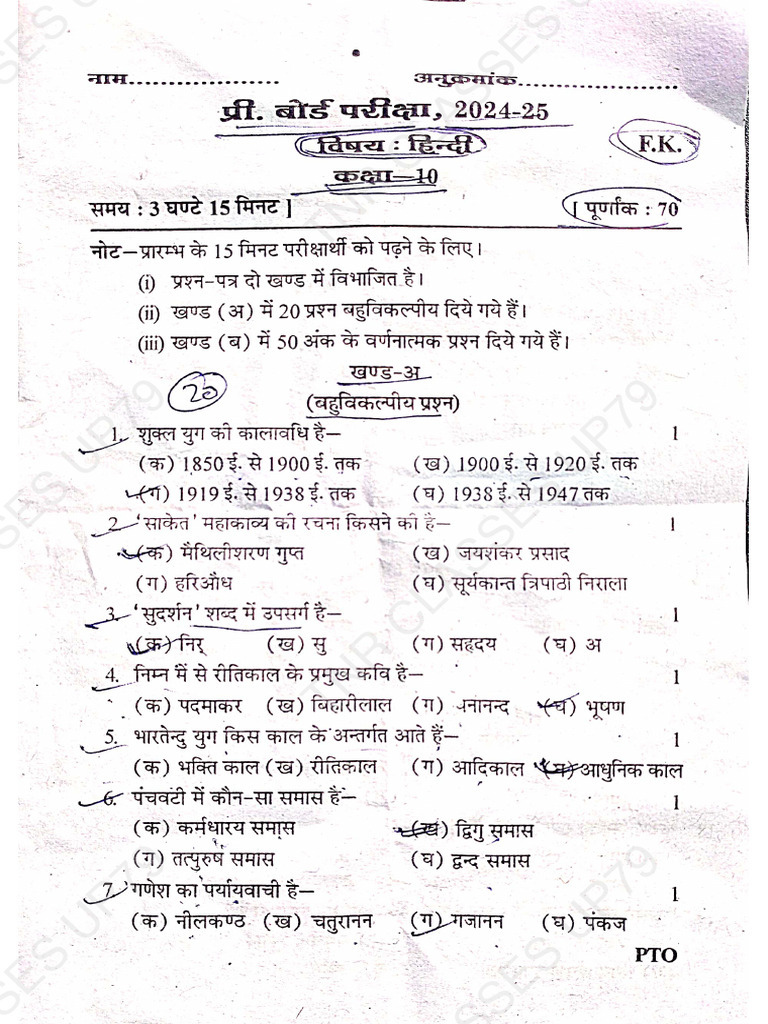 नाम................... अनुक्रमांक.....................
प्री. बोर्ड परीक्षा, 2024-25
विषय : हिन्दी F.K.
कक्षा—10
समय : 3 घण्टे 15 मिनट ] [ पूर्णांक : 70
नोट–प्रारम्भ के 15 मिनट परीक्षार्थी को पढ़ने के लिए।
(i) प्रश्न-पत्र दो खण्ड में विभाजित है।
(ii) खण्ड (अ) में 20 प्रश्न बहुविकल्पीय दिये गये हैं।
(iii) खण्ड (ब) में 50 अंक के वर्णनात्मक प्रश्न दिये गये हैं।
खण्ड-अ
20
(बहुविकल्पीय प्रश्न)
1. शुक्ल युग की कालावधि है– 1
(क) 1850 ई. से 1900 ई. तक (ख) 1900 ई. से 1920 ई. तक
(ग) 1919 ई. से 1938 ई. तक (घ) 1938 ई. से 1947 तक
2. 'साकेत' महाकाव्य की रचना किसने की है– 1
(क) मैथिलीशरण गुप्त (ख) जयशंकर प्रसाद
(ग) हरिऔध (घ) सूर्यकान्त त्रिपाठी निराला
3. 'सुदर्शन' शब्द में उपसर्ग है– 1
(क) निर् (ख) सु (ग) सहृदय (घ) अ
4. निम्न में से रीतिकाल के प्रमुख कवि है– 1
(क) पदमाकर (ख) बिहारीलाल (ग) घनानन्द (घ) भूषण
5. भारतेन्दु युग किस काल के अन्तर्गत आते हैं– 1
(क) भक्ति काल (ख) रीतिकाल (ग) आदिकाल (घ) आधुनिक काल
6. पंचवटी में कौन-सा समास है– 1
(क) कर्मधारय समास (ख) द्विगु समास
(ग) तत्पुरुष समास (घ) द्वन्द समास
7. गणेश का पर्यायवाची है– 1
(क) नीलकण्ठ (ख) चतुरानन (ग) गजानन (घ) पंकज
PTO
TNR CLASSES UP79